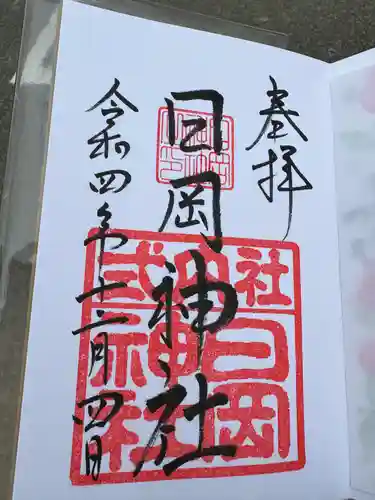 奉拝
日岡神社
令和四年十二月四日
式内社
日岡
神社